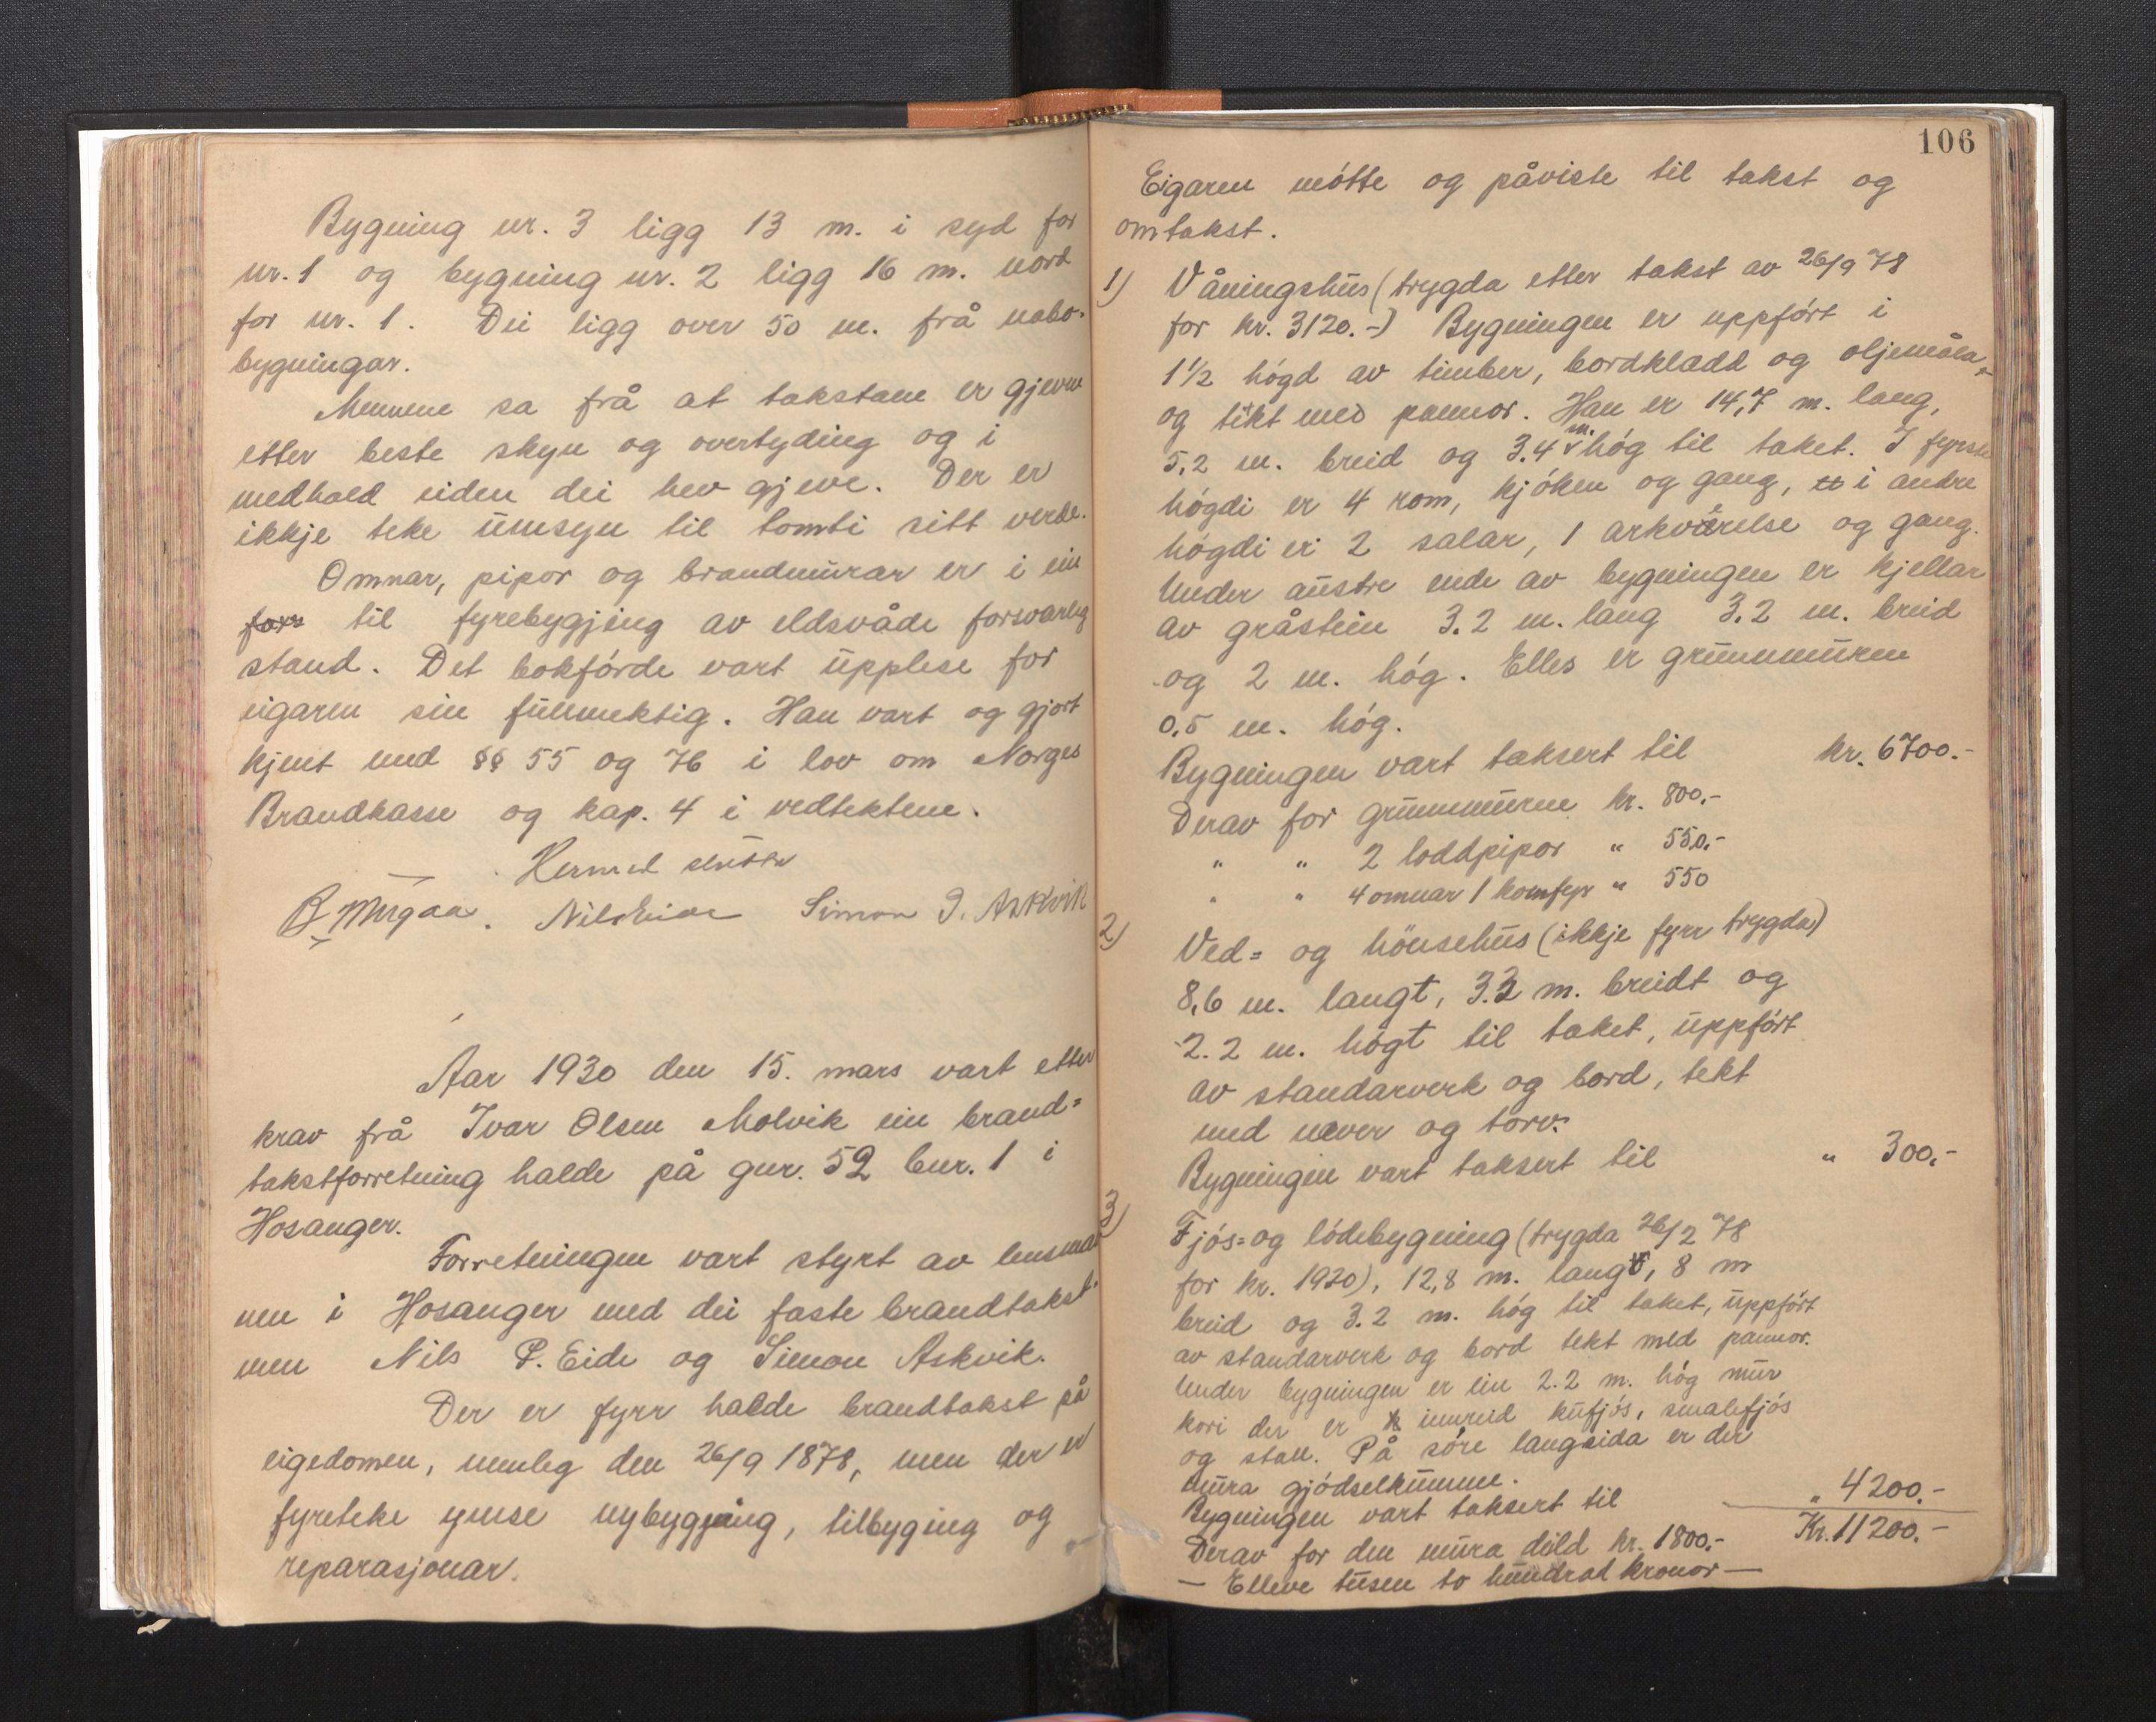 Bygning nr. 3 ligg 13 m. i syd for
nr. 1 og bygning nr. 2 ligg 16 m. nord
for nr. 1. Dei ligg over 50 m. frå nabo-
bygningar.
Mennene sa frå at takstane er gjevne
etter beste skyn og overtyding og i
medhald eiden dei hev gjeve. Der er
ikkje teke umsyn til tomti sitt verde.
Omnar, pipor og brandmurar er i ein
til fyrebygjing av eldsvåde forsvarleg
stand. Det bokførde vart upplese for
eigaren sin fullmektig. Han vart og gjort
kjent med §§ 55 og 76 i lov om Norges
Brandkasse og kap. 4 i vedtektene.
Hermed slutta
Nils Eide Simon I. Askvik
Aar 1930 den 15. mars vart etter
krav frå Ivar Olsen Molvik ein brand=
takstforretning halde på gnr. 52 bnr. 1 i
Hosanger.
Forretningen vart styrt av lensman
nen i Hosanger med dei faste brandtakst-
men Nils P. Eide og Simon Askvik.
Der er fyrr halde brandtakst på
eigedomen, nemleg den 26/9 1878, men der er
fyreteke ymse nybygging, tilbyging og
reparasjonar.
106
Eigaren møtte og påviste til takst og
omtakst.
1) Våningshus (trygda etter takst av 26/9 78
for kr. 3120.-) Bygningen er uppført i
1½ høgd av timber, bordkledd og oljemåla,
og tekt med pannor. Han er 14,7 m. lang,
5,2 m. breid og 3.4 m. høg til taket. I fyrste
høgdi er 4 rom, kjøken og gang, i andre
høgdi er 2 salar, 1 arkværelse og gang.
Under austre ende av bygningen er kjellar
av gråstein 3.2 m. lang 3.2 m. breid
og 2 m. høg. Elles er grunnmuren
0,5 m. høg.
Bygningen vart taksert til kr. 6700.-
Derav for grunnmuren kr. 800,-
" " 2 loddpipor " 550,-
" " 4 omnar 1 komfyr " 550
2) Ved= og hönsehus (ikkje fyrr trygda)
8,6 m. langt, 3.3 m. breidt og
2.2 m. høgt til taket, uppført
av standarverk og bord, tekt
med never og torv.
Bygningen vart taksert til " 300,-
3) Fjøs= og lödebygning (trygda 26/2 78
for kr. 1920), 12,8 m. lang, 8 m
breid og 3.2 m. høg til taket, uppført
av standarverk og bord tekt med pannor.
Under bygningen er ein 2.2 m. høg mur
kori der er innreid kufjøs, smalefjøs
og stall. På søre langsida er der
mura gjødselkumme.
Bygningen vart taksert til " 4200.-
Derav for den mura deld kr. 1800.- Kr. 11200.-
— Elleve tusen to hundrad kronor —